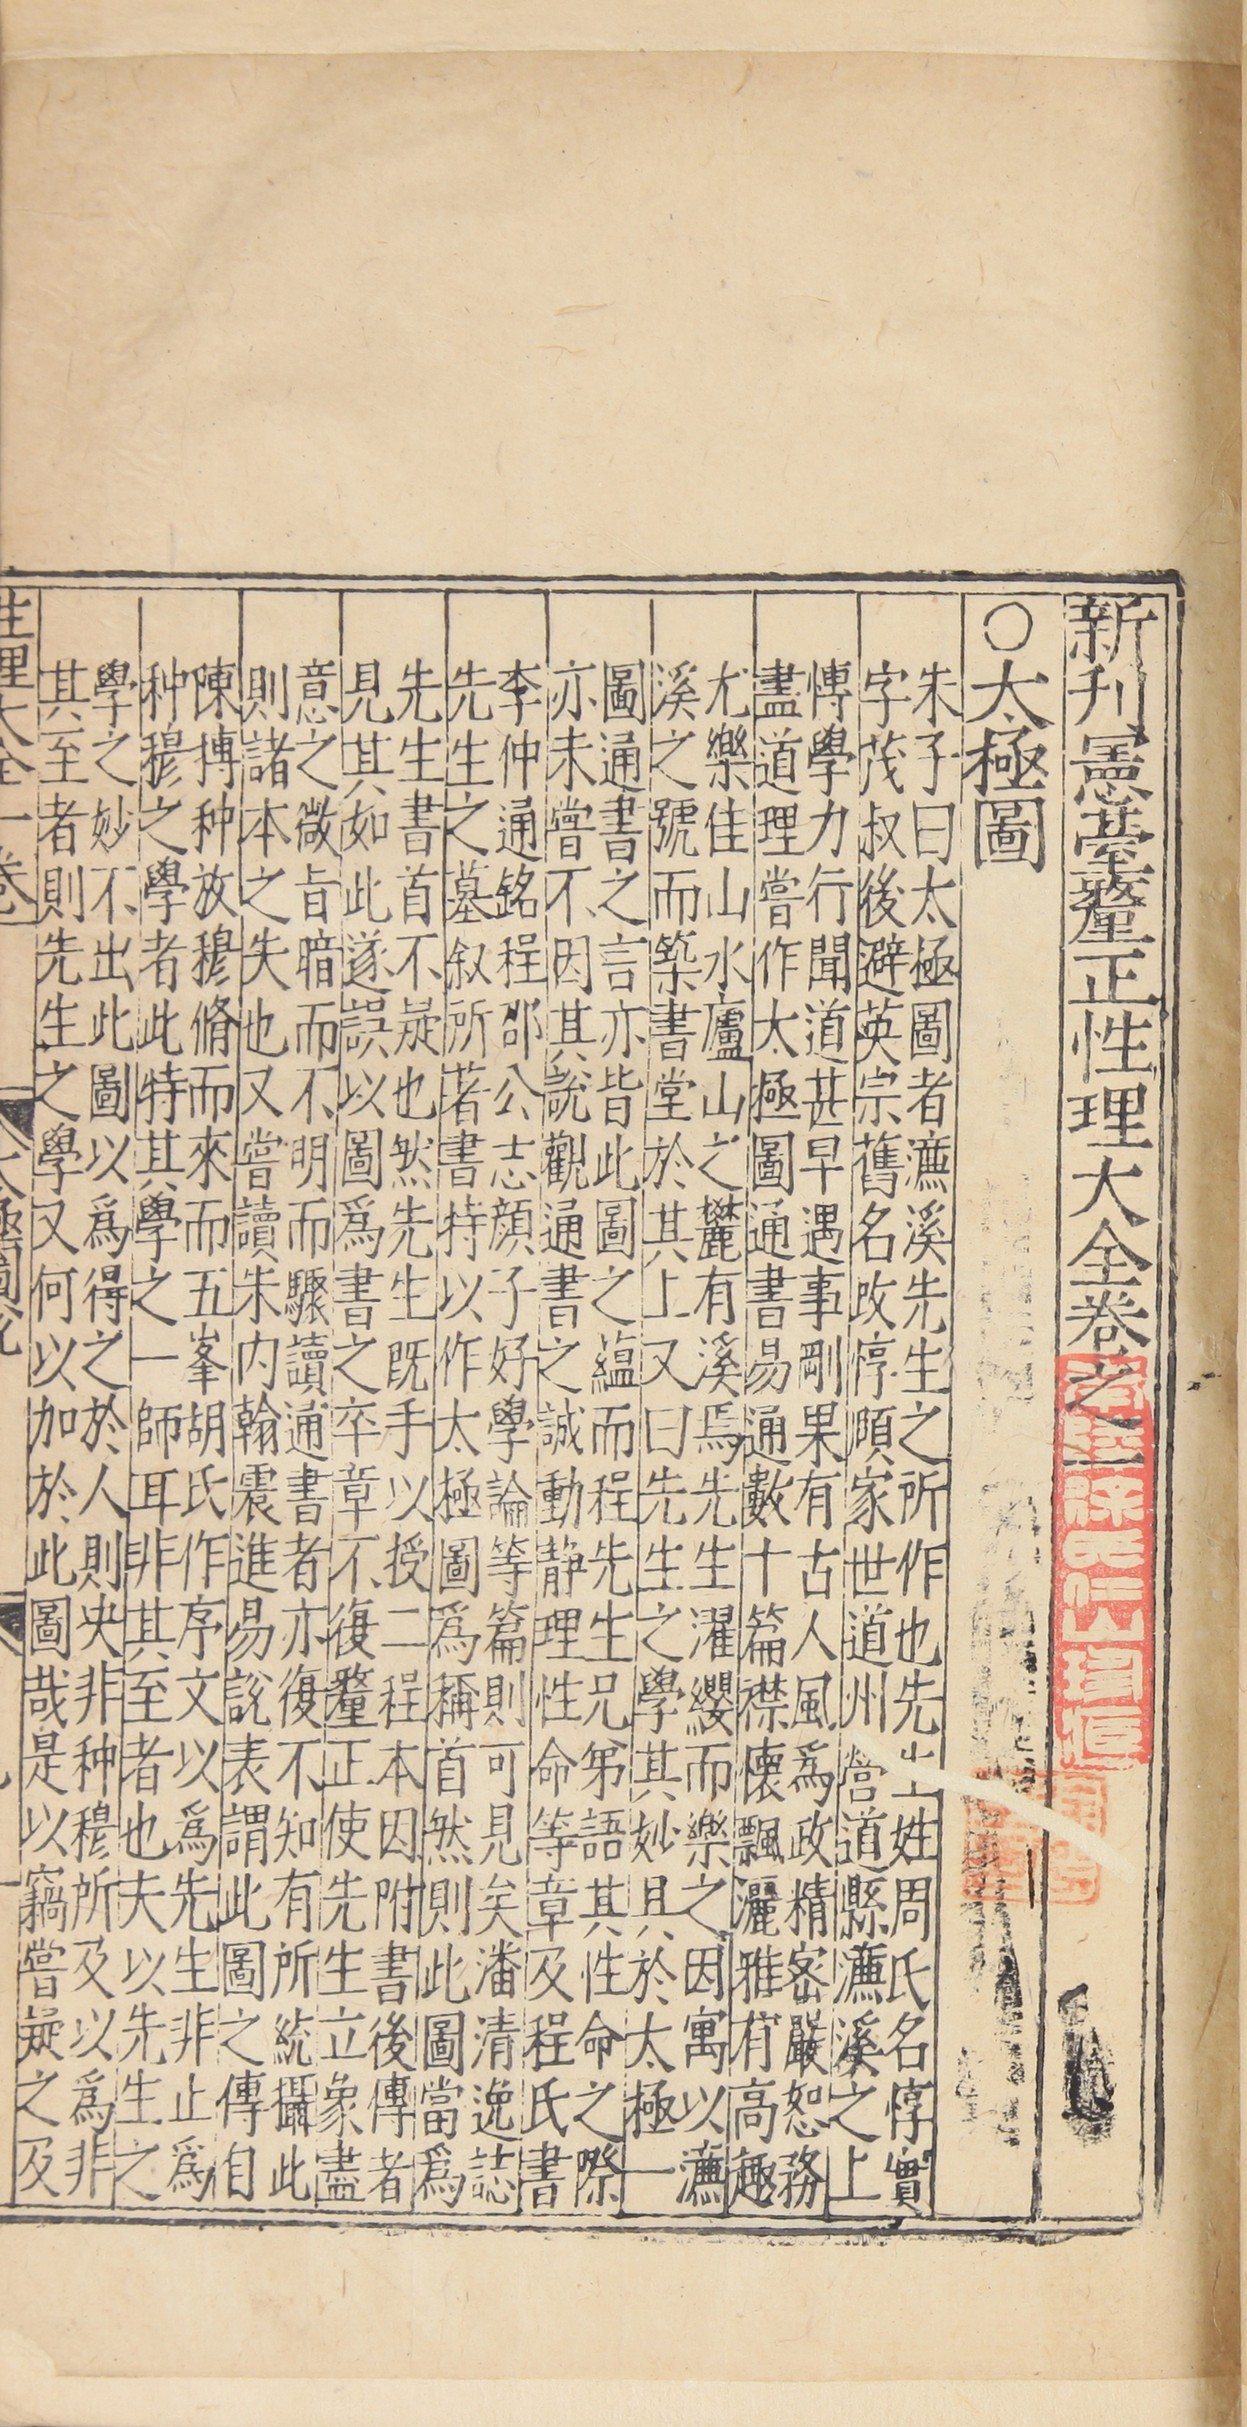 新刊憲臺釐正性理大全卷之一
○太極圖
朱子曰太極圖者濂溪先生之所作也先生姓周氏名惇實
字茂叔後避英宗舊名改惇頤家世道州營道縣濂溪之上
博學力行聞道甚早遇事剛果有古人風爲政精密嚴恕務
盡道理嘗作太極圖通書易通數十篇襟懷飄灑雅有高趣
尤樂佳山水廬山之麓有溪焉先生濯纓而樂之因寓以濂
溪之號而築書堂於其上又曰先生之學其妙具於太極一
圖通書之言亦皆此圖之蘊而程先生兄弟語其性命之際
亦未嘗不因其說觀通書之誠動靜理性命等章及程氏書
李仲通銘程邵公志顏子好學論等篇則可見矣潘清逸誌
先生之墓叙所著書特以作太極圖爲稱首然則此圖當爲
先生書首不疑也然先生既手以授二程本因附書後傳者
見其如此遂誤以圖爲書之卒章不復釐正使先生立象盡
意之微旨暗而不明而驟讀通書者亦復不知有所統攝此
則諸本之失也又嘗讀朱內翰震進易說表謂此圖之傳自
陳摶种放穆脩而來而五峯胡氏作序文以爲先生非止爲
种穆之學者此特其學之一師耳非其至者也夫以先生之
學之妙不出此圖以爲得之於人則决非种穆所及以爲非
其至者則先生之學又何以加於此圖哉是以竊嘗疑之及
性理大全一卷
太極圖說